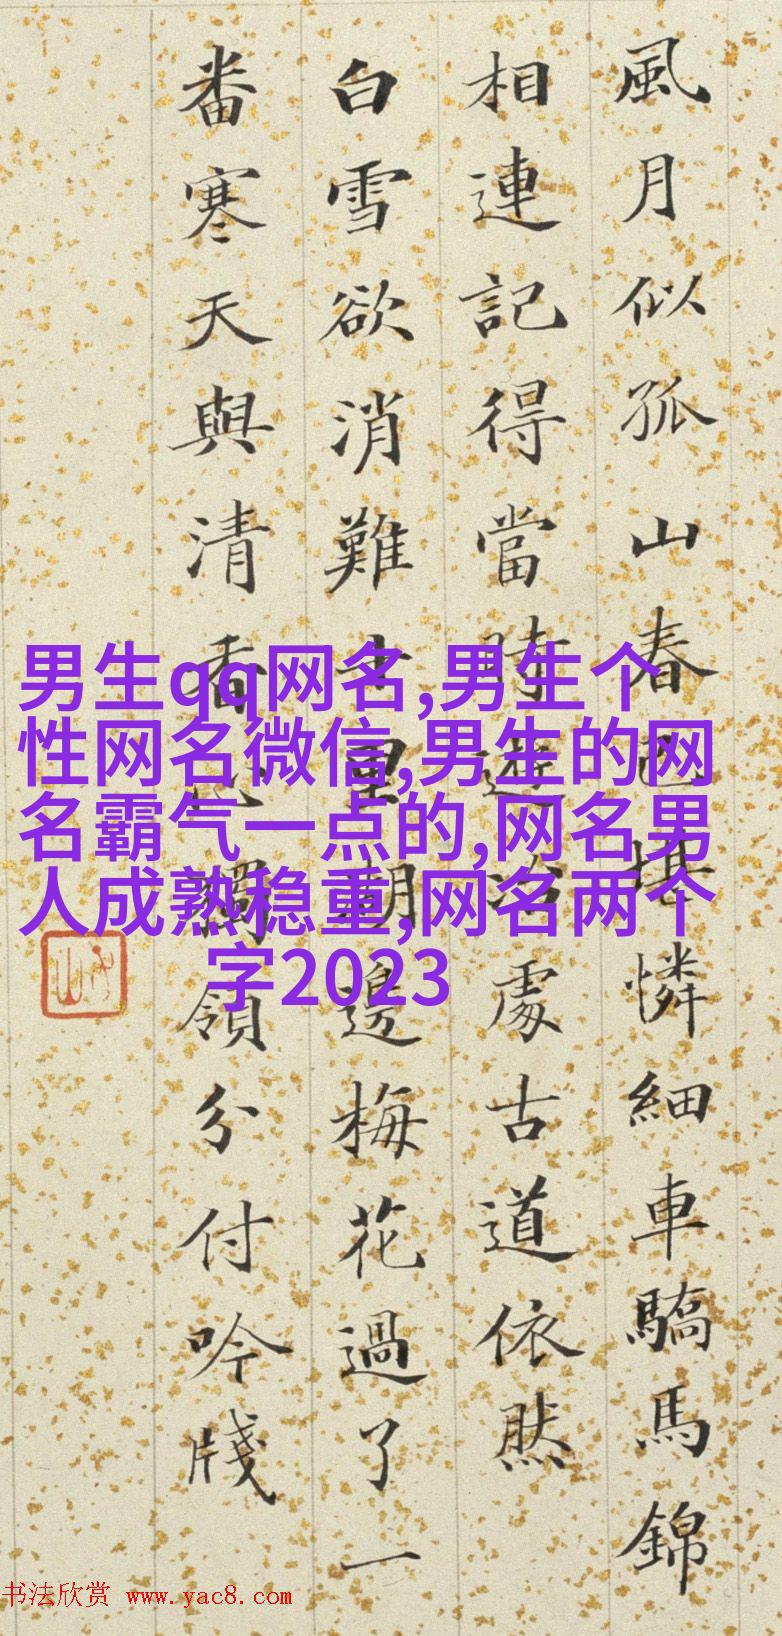 風月似孤山春已堪憐細車驕馬錦
相連記得當時遊冶處古道依然
白雪欲消難十里湖邊梅花過了一
番寒天與清香心獨領分付吟牋
男生qq网名,男生个
性网名微信,男生的网
名霸气一点的,网名男
人成熟稳重,网名两个
字2023
书法欣赏 www.yac8.com